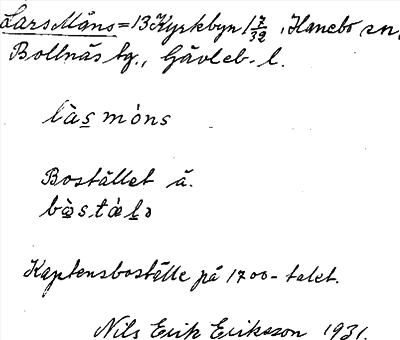 Lars Måns = 13 Kyrkbyn 1 7/32, Hanebo sn,
Bollnäs tg., Gävleb. l.
làs móns
Bostället ä.
bòstálə
Kaptensboställe på 1700-talet.
Nils Erik Eriksson 1931.